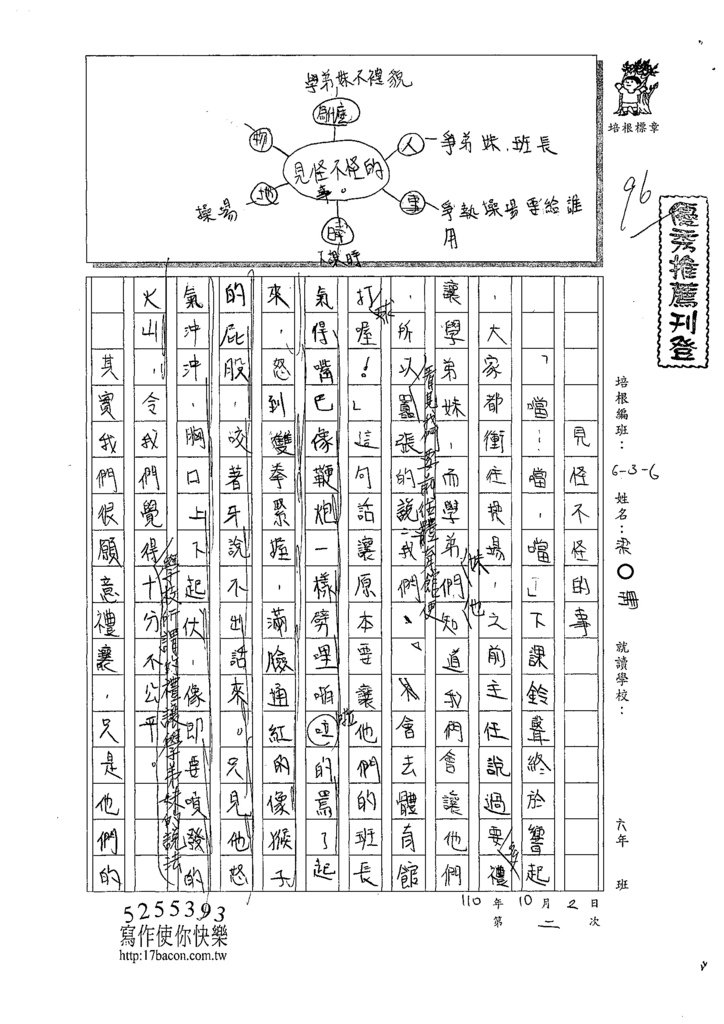 學弟妹不禮貌
物
人
爭弟妹、班長
見怪不怪的事。
操場
地
事
爭執操場要給誰用
時
下課時
培根標章
96
優秀推薦刊登
培根編班：6-3-6
姓名：梁○珊
就讀學校：
六年 班
110年10月2日
第二次
見怪不怪的事
「噹…噹，噹」下課鈴聲終於響起
，大家都衝往操場，之前主任說過要禮
讓學弟妹，而學弟們知道我們會讓他們
，所以囂張的說：「我們、會去體育館
打球喔！」這句話讓原本要讓他們的班長
氣得嘴巴像鞭炮一樣劈哩啪啦的罵了起
來，怒到雙拳緊握，滿臉通紅的像猴子
的屁股，咬著牙說不出話來。只見他怒
氣沖沖，胸口上下起伏，像即要噴發的
火山，令我們覺得十分不公平。
其實我們很願意禮讓，只是他們的
妹
他
多
啦
學校所謂的禮讓學弟妹的說法
5255393
寫作使你快樂
http:17bacon.com.tw